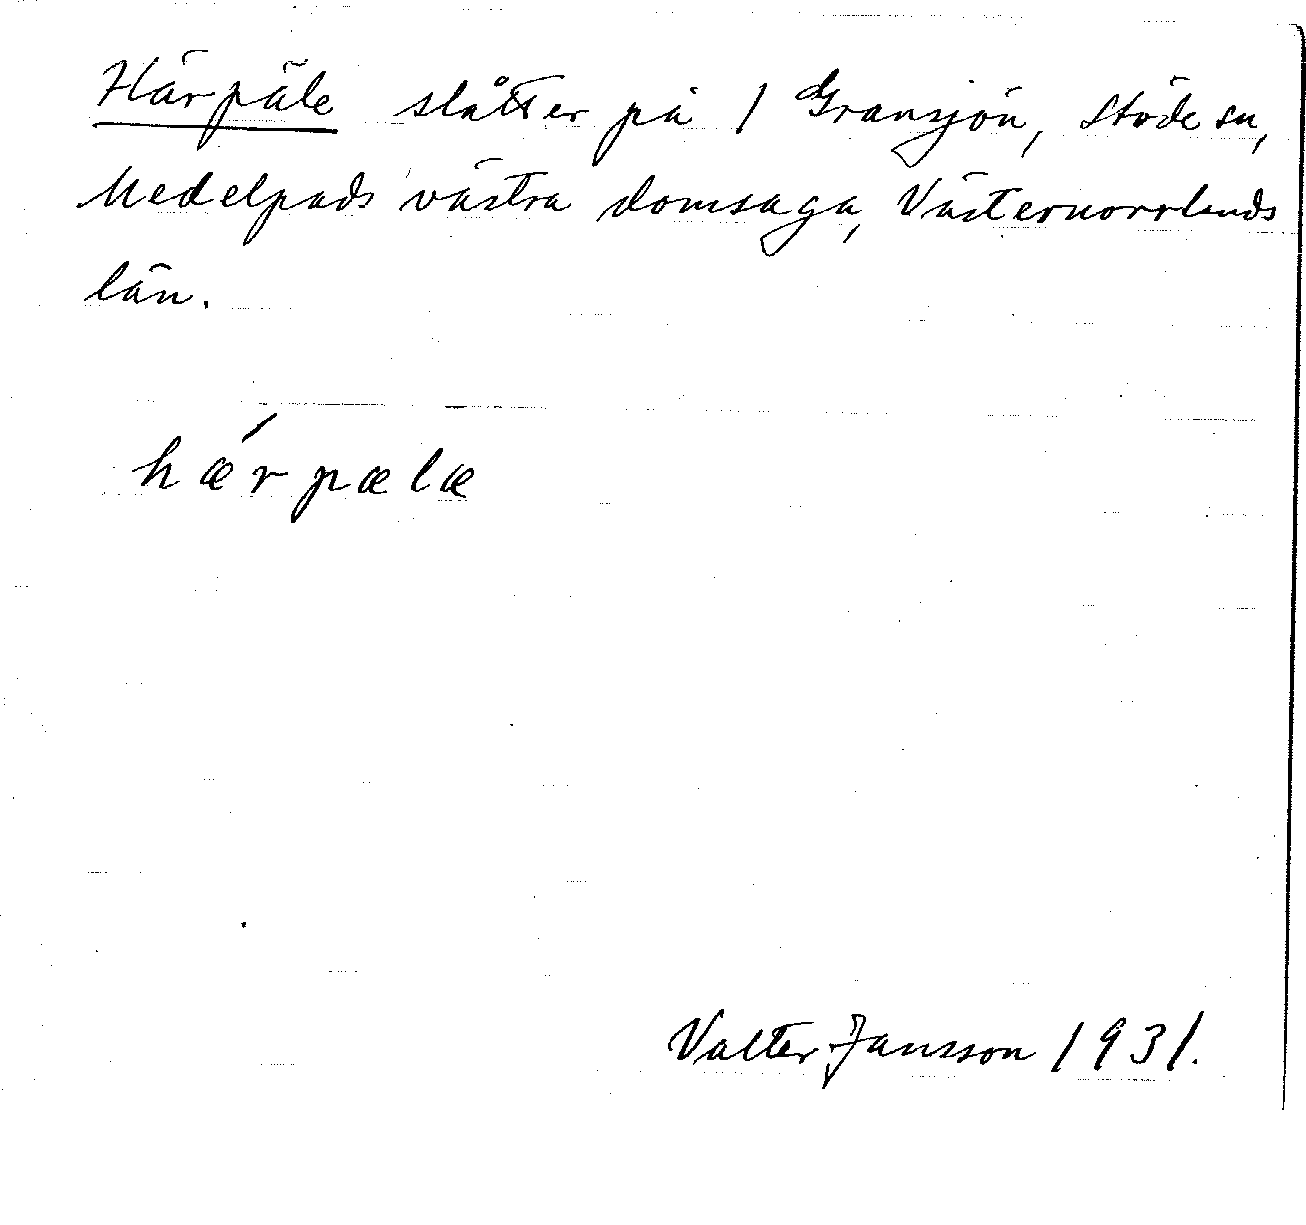 Härpäle slåtter på 1 Gransjön, Stöde sn,
Medelpads västra domsaga, Västernorrlands
län.
hǽrpælæ
Valter Jansson 1931.